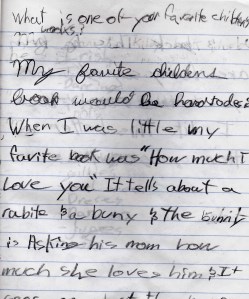 What is one of your favorite children
books?
My favite childens
book would be
When I was little my
favite book was "How much I
Love you" It tells about a
rabite & a buny & the bunny
is Asking his mom how
much she loves him & It